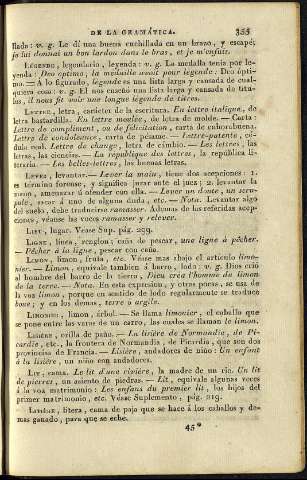 DE LA GRAMÁTICA. 355
llada : v. g. Le dí una buena cuchillada en un brazo, y escapé;
je lui donnai un bon lardon dans le bras, et je m'enfuis.
LÉGENDE, legendario, leyenda : v. g. La medalla tenia por le-
yenda : Deo optimo, la médaille avait pour légende : Deo opti-
mo. — A lo figurado, légende es una lista larga y cansada de cual-
quiera cosa : v. g. El nos enseñó una lista larga y cansada de títu-
los, il nous fit voir une longue légende de titres.
LETTRE, letra, carácter de la escritura. En lettre italique, de
letra bastardilla. En lettre moulée, de letra de molde. — Carta :
Lettre de complément, ou de félicitation, carta de enhorabuena.
Lettre de condoléance, carta de pésame. — Lettre-patente, cé-
dula real. Lettre de change, letra de cámbio. — Les lettres, las
letras, las ciencias. — La république des lettres, la república li-
teraria. — Les belles-lettres, las buenas letras.
LEVER, levantar. — Lever la main, tiene dos acepciones : 1.
es término forense, y significa jurar ante el juez ; 2. levantar la
mano, amenazar á ofender con ella. — Lever un doute, un scru-
pule, sacar á uno de alguna duda, etc. — Nota. Levantar algo
del suelo, debe traducirse ramasser. Ademas de las referidas acep-
ciones, véanse las voces ramasser y relever.
LIEU, lugar. Véase Sup. pág. 219.
LIGNE, línea, renglon ; caña de pescar, une ligne à pêcher.
— Pêcher à la ligne, pescar con caña.
LIMON, limon, fruta, etc. Véase mas abajo el artículo limo-
nier. — Limon, equivale tambien á barro, lodo : v. g. Dios crió
al hombre del barro de la tierra, Dieu créa l'homme du limon
de la terre. — Nota. En esta expresion, y otras pocas, se usa de
la voz limon, porque en sentido de lodo regularmente se traduce
boue ; y en los demas, terre o argile.
LIMONIER, limon, árbol. — Se llama limonier, el caballo que
se pone entre las varas de un carro, las cuales se llaman le limon.
LISIÈRE, orilla de paño. — La lisière de Normandie, de Pi-
cardie, etc., la frontera de Normandía, de Picardía, que son dos
provincias de Francia. — Lisière, andadores de niño : Un enfant
à la lisière, un niño con andadores.
LIT, cama. Le lit d'une rivière, la madre de un rio. Un lit
de pierres, un asiento de piedras. — Lit, equivale algunas veces
á la voz matrimonio : Les enfans du premier lit, los hijos del
primer matrimonio, etc. Véase Suplemento, pág. 219.
LITIÈRE, litera, cama de paja que se hace á los caballos y de-
mas ganado, para que se eche.
45*